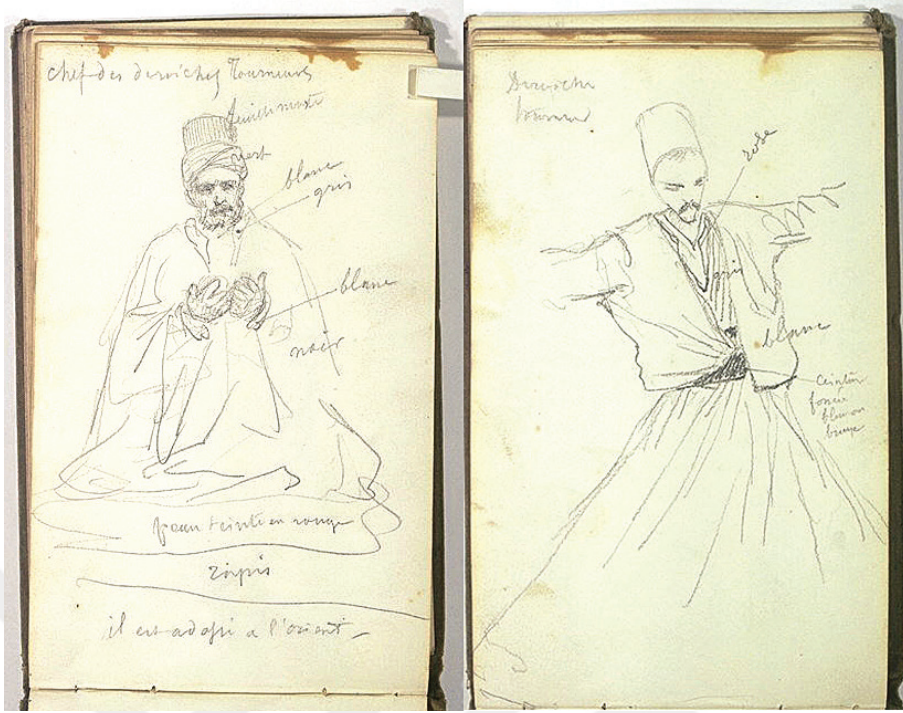 chef des derviches Tourneurs
vert
blanc
gris
blanc
noir
peau teinte en rouge
tapis
il est a l'orient
Derviche
tourneur
rose
gris
blanc
ceinture
foncée
bleu ou